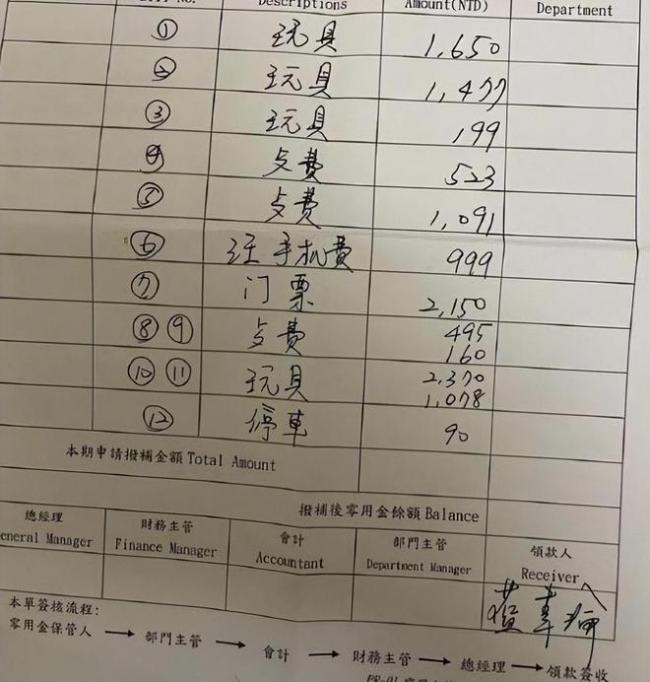 Descriptions Amount(NTD) Department
① 玩具 1,650
② 玩具 1,477
③ 玩具 199
④ 歺費 523
⑤ 歺費 1,091
⑥ 手机費 999
⑦ 门票 2,150
⑧ ⑨ 歺費 495
160
⑩ ⑪ 玩具 2,370
1,078
⑫ 停車 90
本期申請撥補金額 Total Amount
撥補後零用金餘額 Balance
總經理 財務主管 會計 部門主管 領款人
General Manager Finance Manager Accountant Department Manager Receiver
本單簽核流程:
零用金保管人 → 部門主管 → 會計 → 財務主管 → 總經理 → 領款簽收